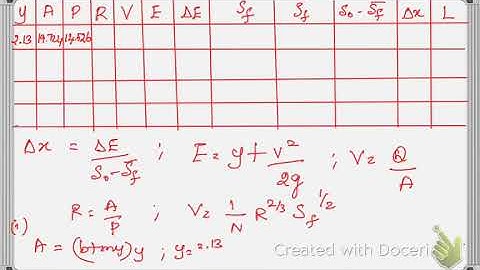 y A P R V E ΔE S_f S̄_f S₀-S̄_f Δx L
2.13 12.526
Δx = ΔE / (S₀-S̄_f) ; E = y + V²/2g ; V = Q/A
R = A/P ; V = 1/N R^2/3 S_f^1/2
(1)
A = (b+my)y ; y = 2.13
Created with Doceri